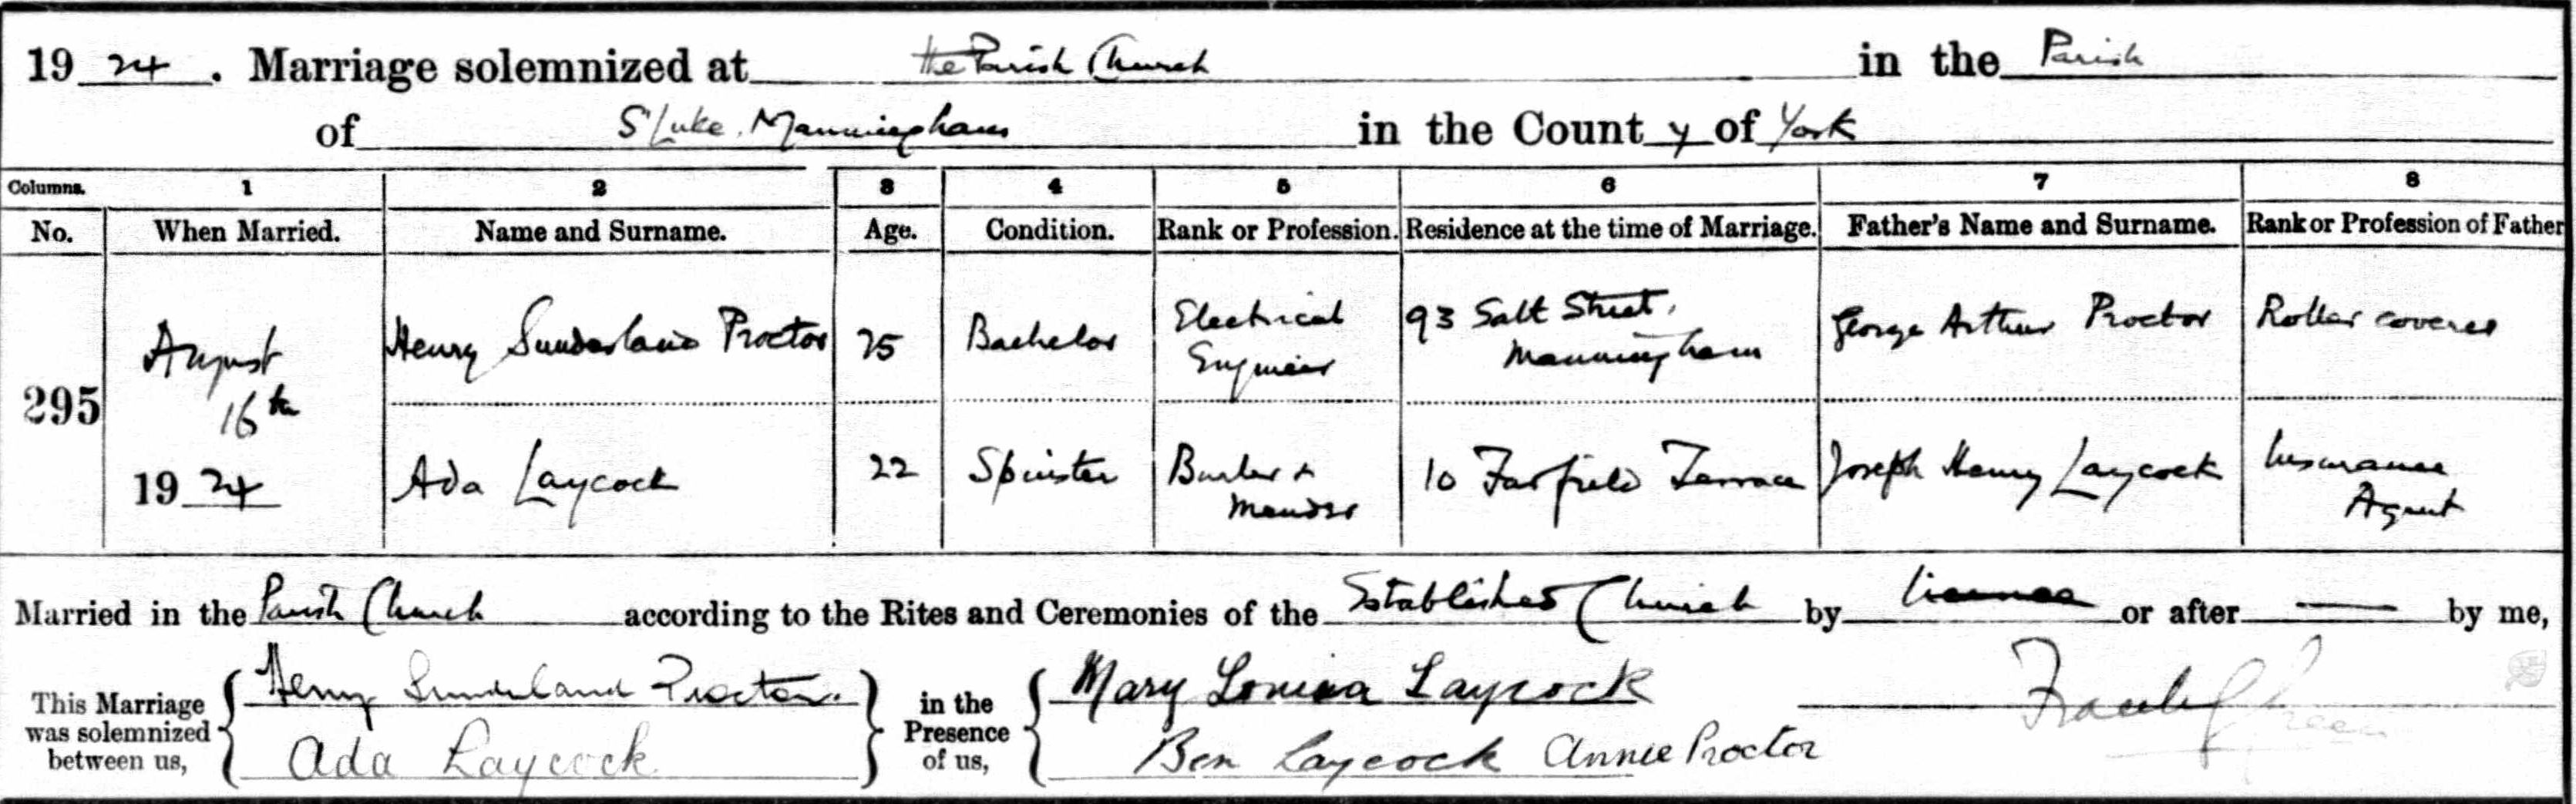 1924. Marriage solemnized at the Parish Church in the Parish
of St Luke, Manningham in the County of York
Columns. 1 2 3 4 5 6 7 8
No. When Married. Name and Surname. Age. Condition. Rank or Profession. Residence at the time of Marriage. Father's Name and Surname. Rank or Profession of Father
295 August 16th 1924
Henry Sunderland Proctor 25 Bachelor Electrical Engineer 93 Salt Street, Manningham George Arthur Proctor Roller coverer
Ada Laycock 22 Spinster Burler & Mender 10 Fairfield Terrace Joseph Henry Laycock Insurance Agent
Married in the Parish Church according to the Rites and Ceremonies of the Established Church by licence or after — by me,
This Marriage was solemnized between us, Henry Sunderland Proctor. Ada Laycock
in the Presence of us, Mary Louisa Laycock Ben Laycock Annie Proctor
Frank